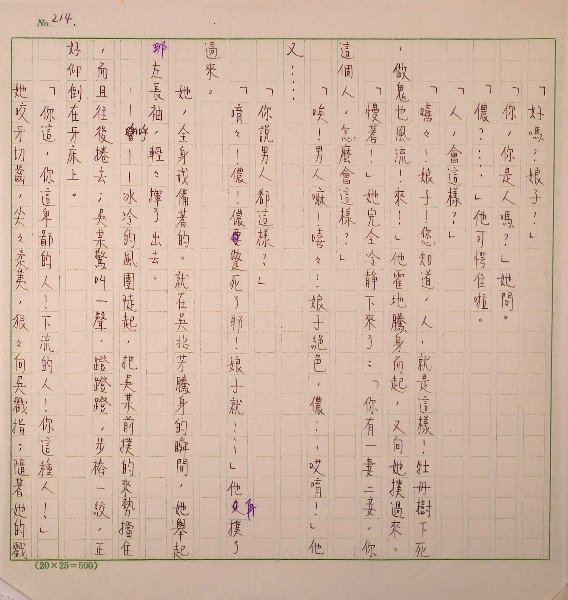 No. 214.
「好嗎？娘子？」
「你，你是人嗎？」她問。
「儂？……」他可愕住啦。
「人，會這樣？」
「嘻々！娘子！您知道，人，就是這樣！牡丹樹下死
，做鬼也風流！來！」他霍地騰身而起，又向她撲過來。
「慢著！」她完全冷靜下來了：「你有一妻二妾，你
這個人，怎麼會這樣？」
「唉！男人嘛！嘻々！娘子絕色，儂……哎唷！」他
又……
「你說男人都這樣？」
「唷々！儂！儂蹩死了耶！娘子就！……」他再撲了
過來。
她，全身戒備著的。就在吳招芳騰身的瞬間，她舉起
那左長袖，輕々揮了出去。
……呼！冰冷的風團陡起，把吳某前撲的來勢擋住
，而且往後捲去；吳某驚叫一聲，蹬蹬蹬，步樁一絞，正
好仰倒在牙床上
「你這，你這卑鄙的人！下流的人！你這種人！」
她咬牙切齒，尖々柔荑，狠々向吳戳指；隨著她的戳
(20×25=500)